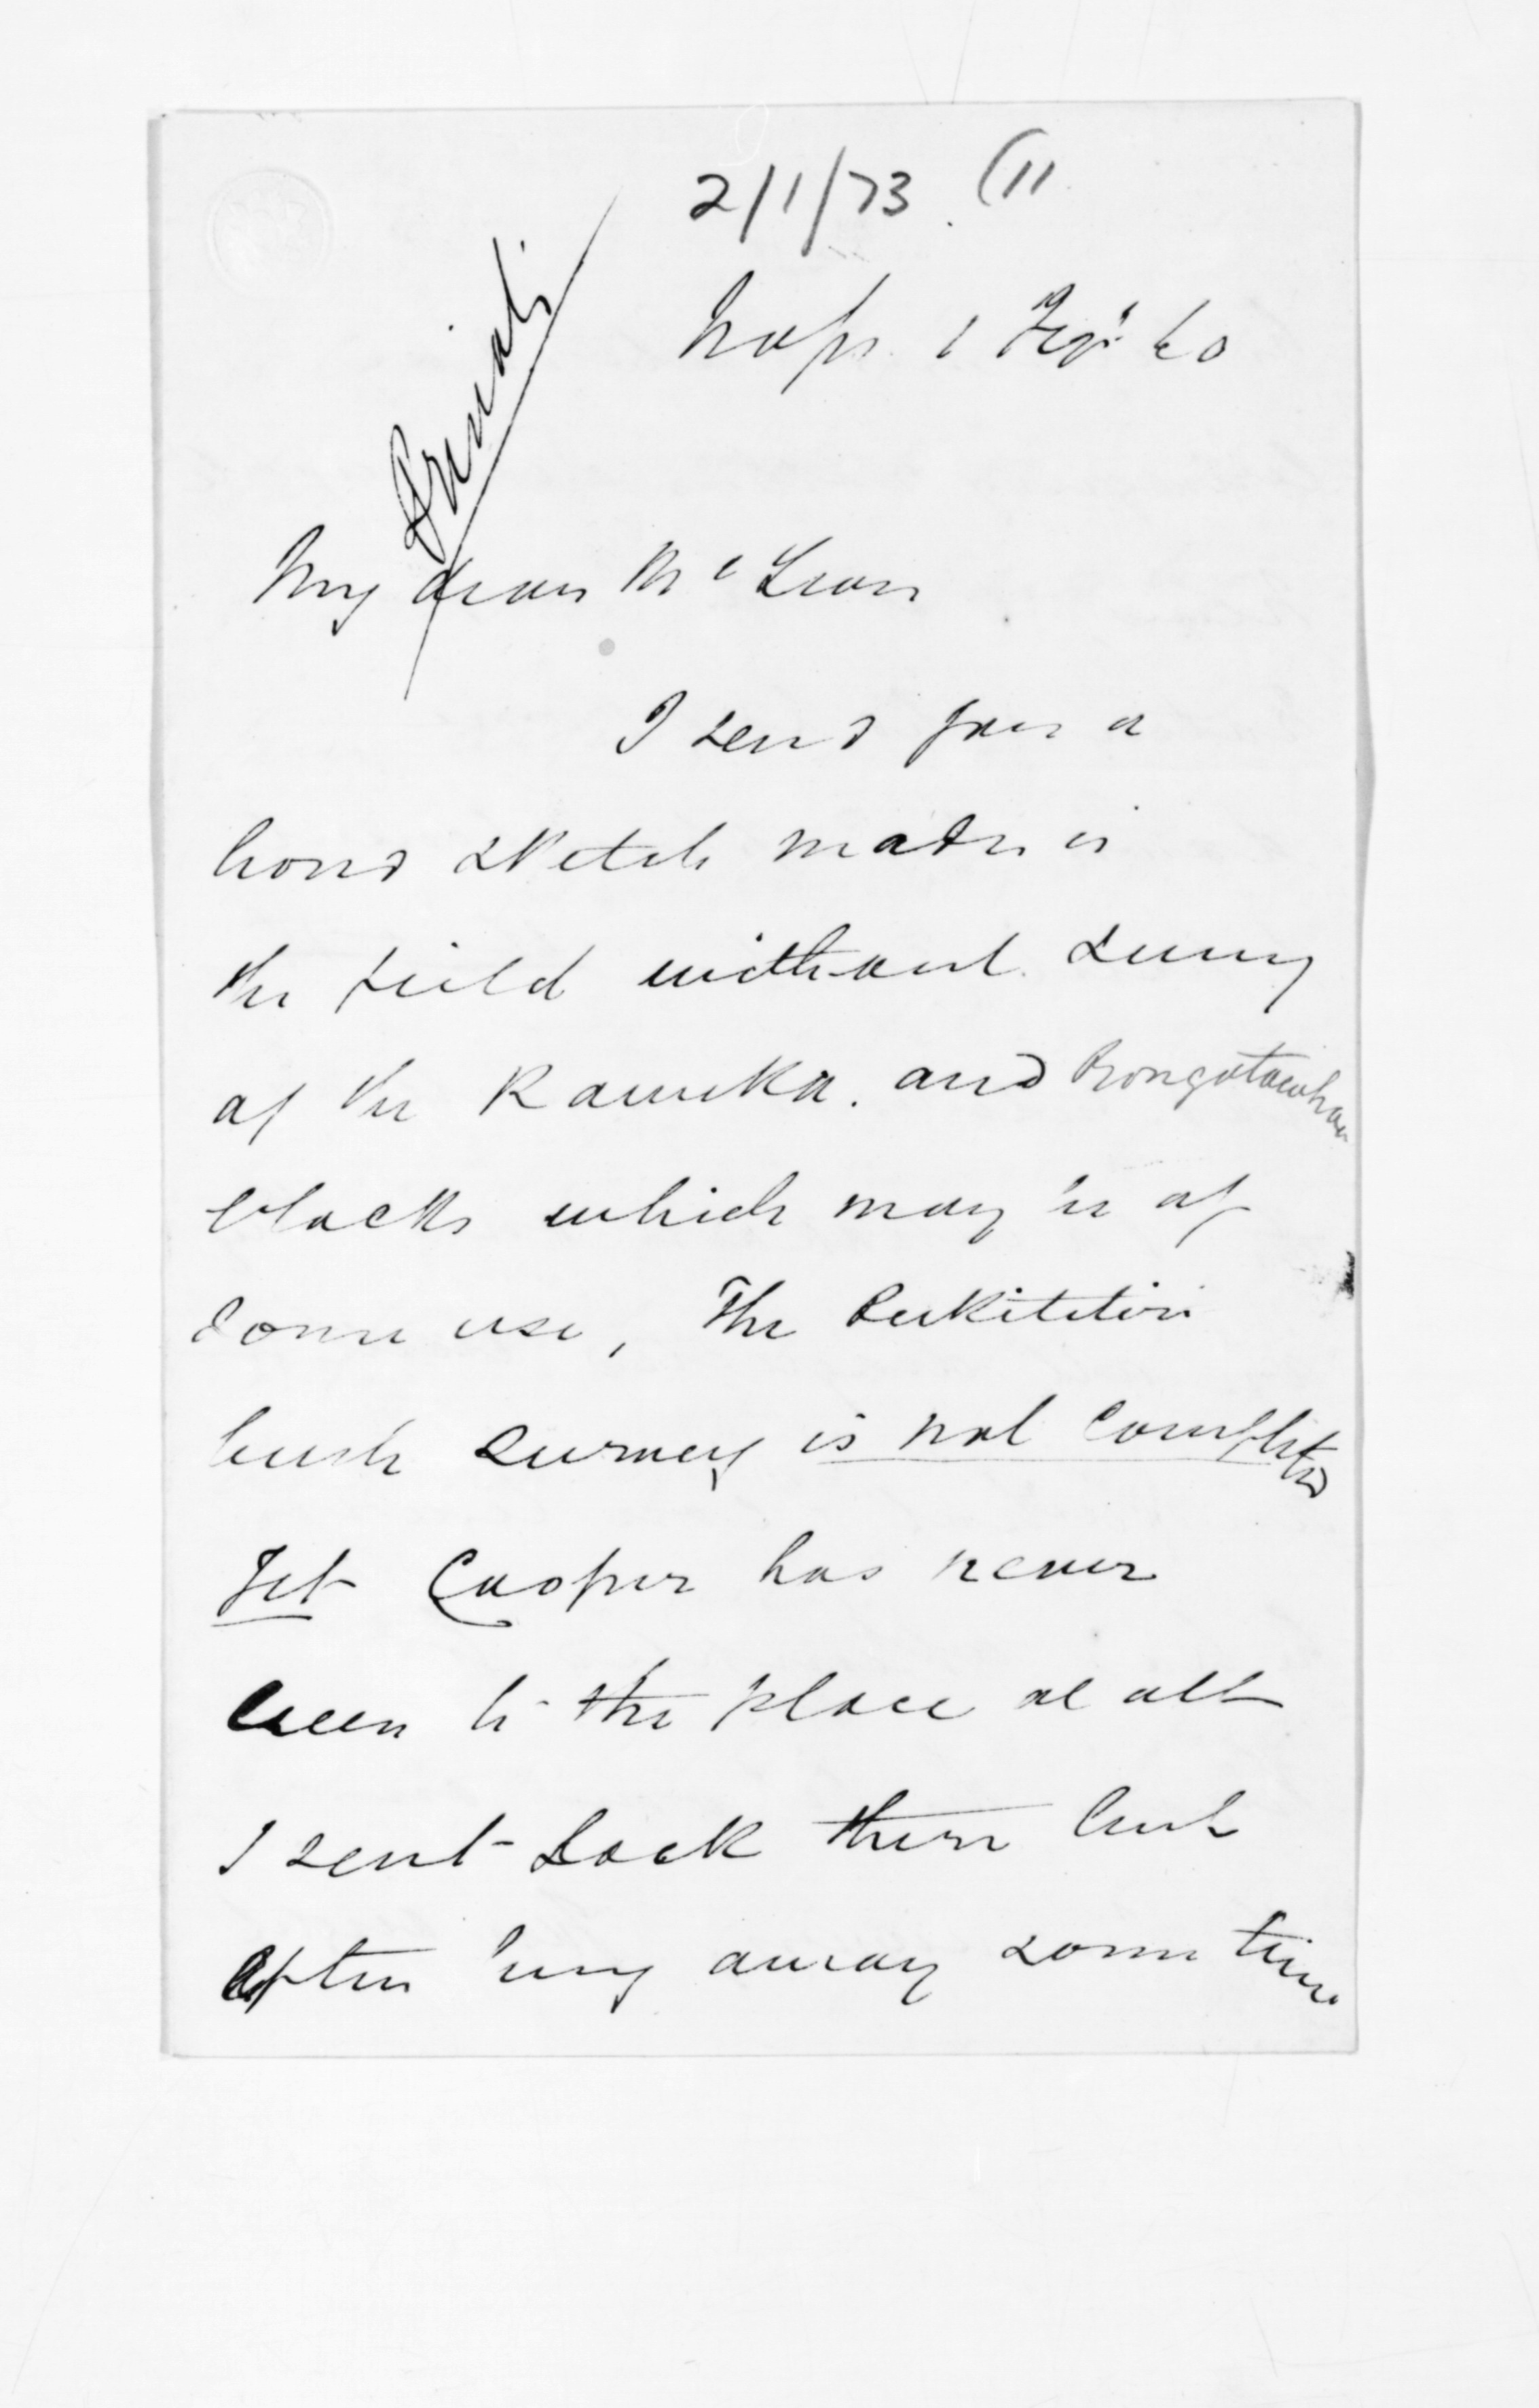 2/1/73 (11
Private
My dear McLean
I send you a
hand sketch made in
the field without survey
of the Raruka. and
blocks which may be of
some use, The Pukititiri
bush survey is not completed
Yet Cooper has never
been to the place at all
I sent Lock there but
after being away some time